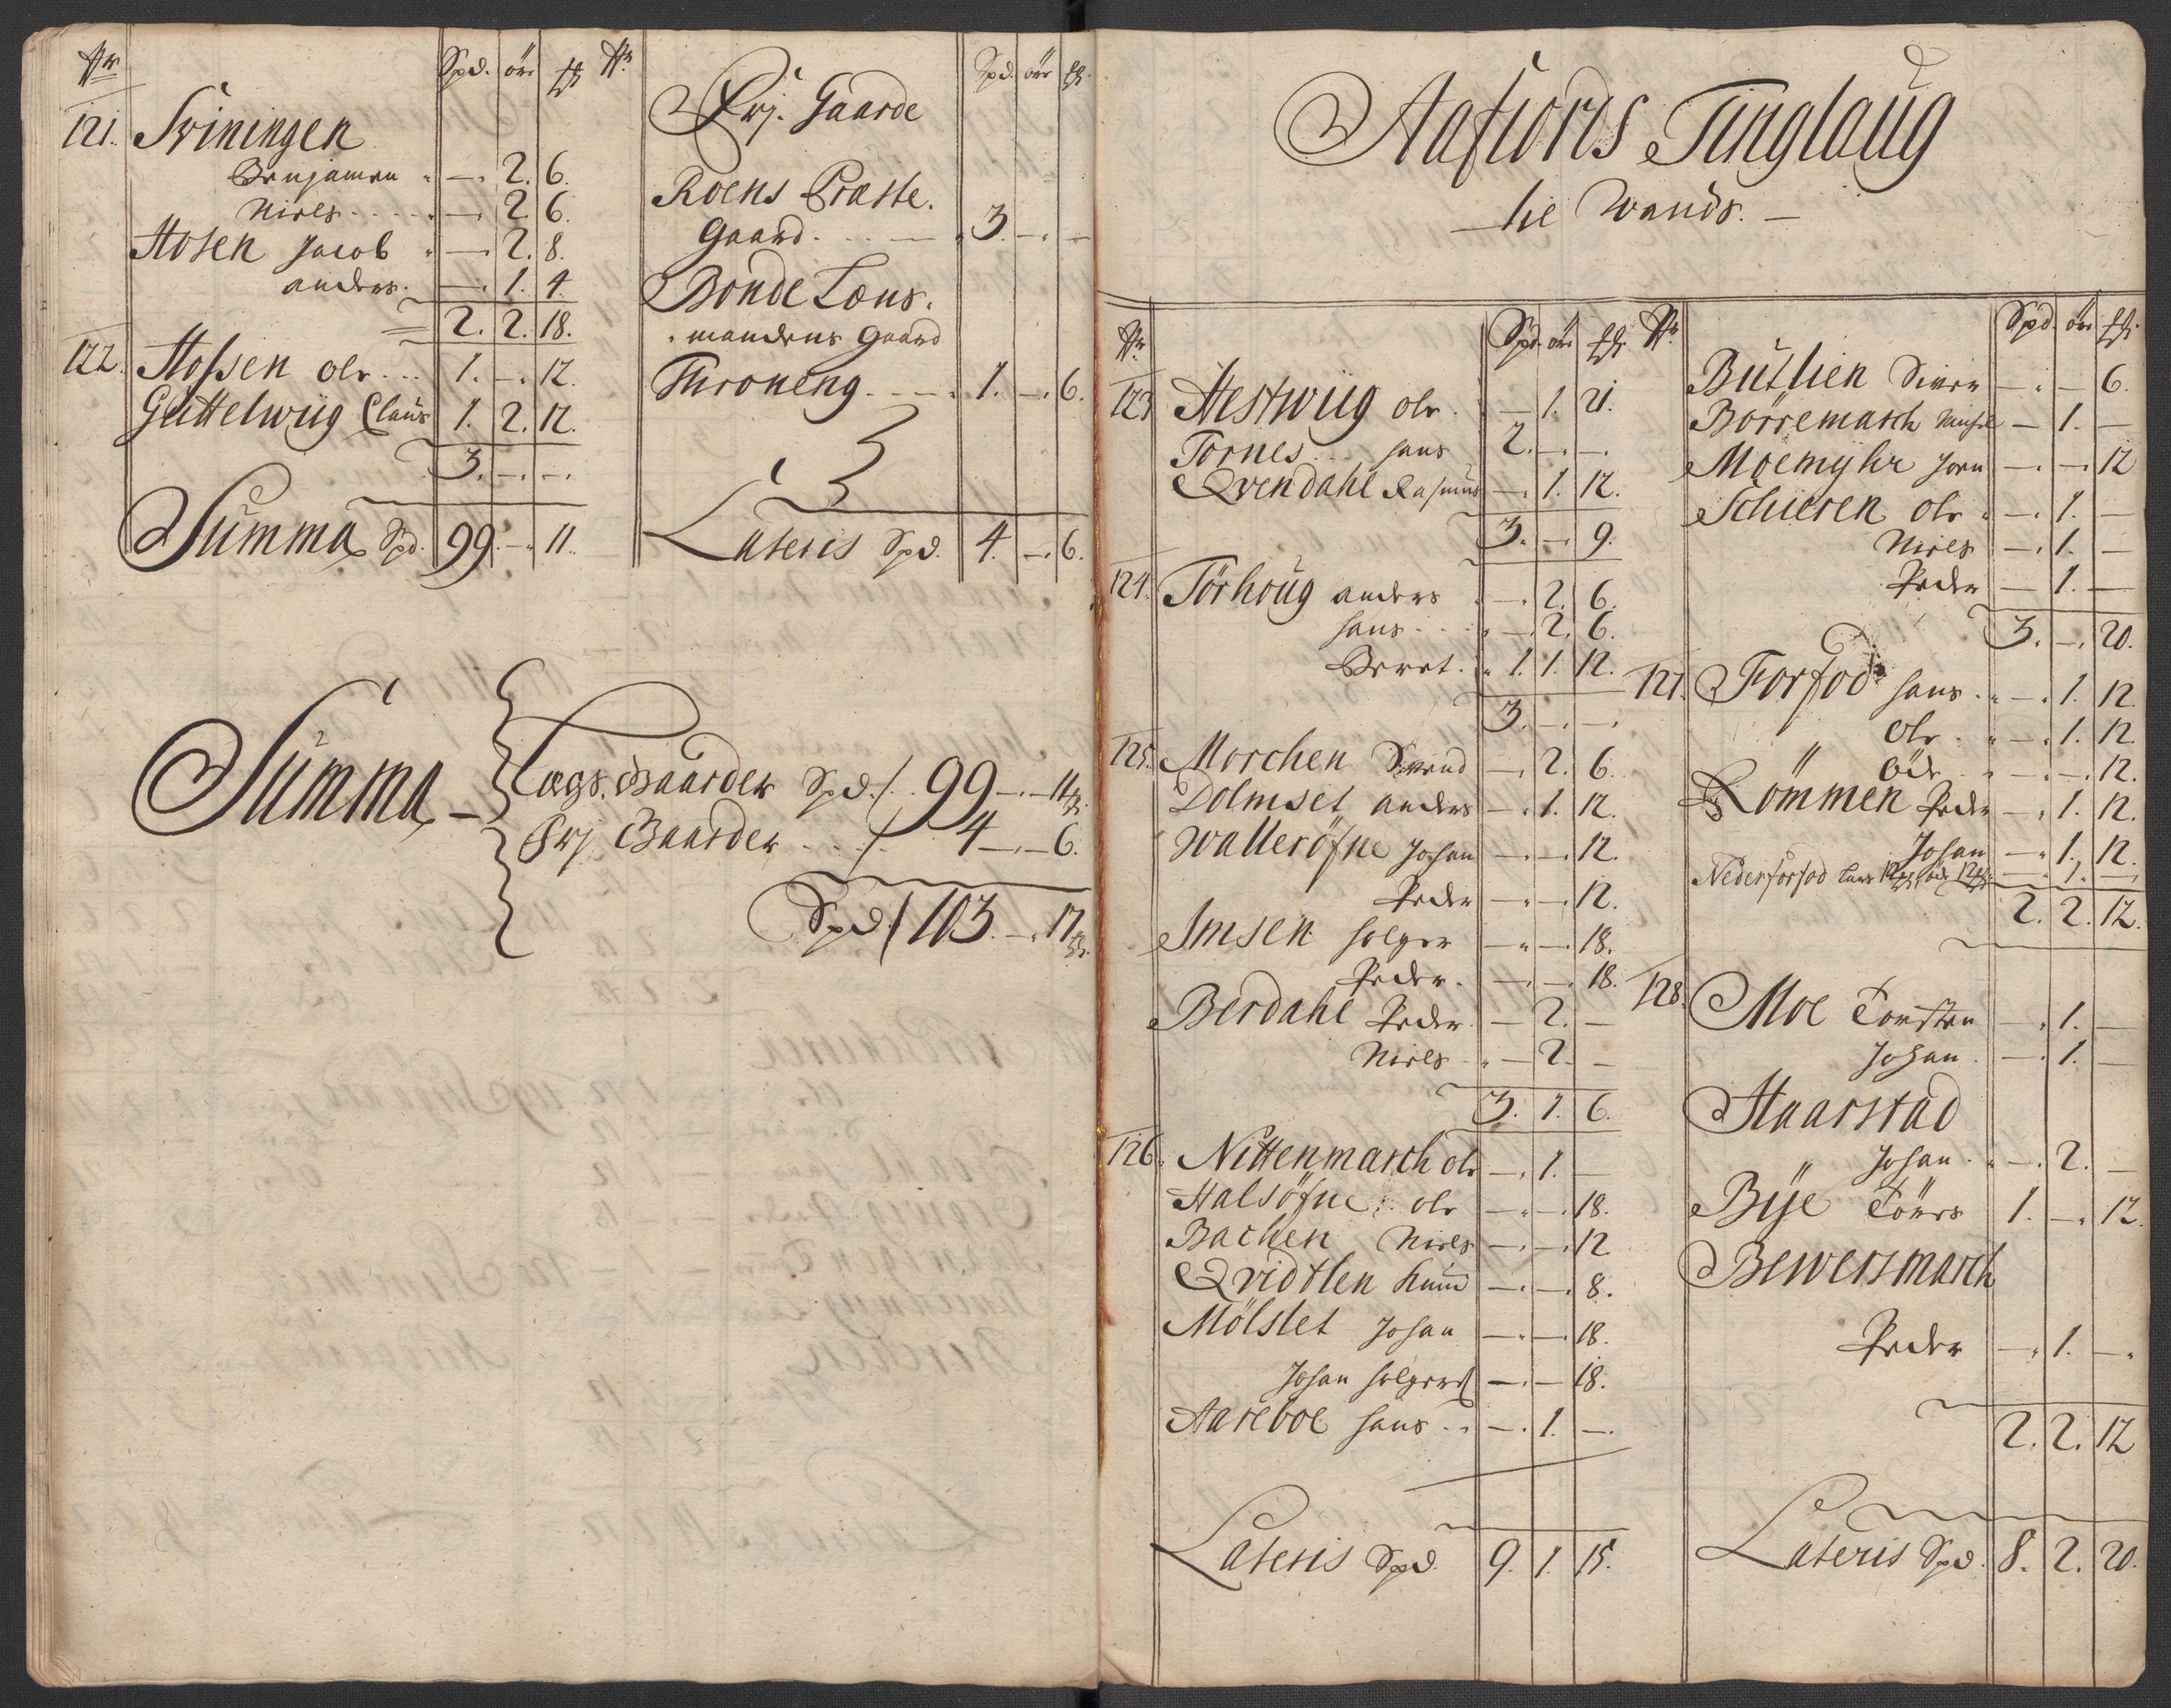 Nr Spd. ört ß
121. Sviningen
Benjamen - 2. 6.
Niels - 2. 6.
Hosen Jacob - 2. 8.
anders. - 1. 4.
2. 2. 18.
122. Hossen ole 1. - 12.
Guttelwiig Claus 1. 2. 12.
3. - -
Summa Spd. 99. - 11.
Nr Spd. ört ß.
Frj. Gaarde
Roens Præste.
Gaard. 3. - -
Bonde Læns.
mandens Gaard
Throneng 1. - 6.
Lateris Spd. 4. - 6.
Summa
Lægs. Gaarder Spd. 99 - 11 ß
Frj Gaarder 4 - 6.
Spd 103. - 17 ß.
Aafiords Tinglaug
lie Wands.
Nr Spd. ört ß
123 Hestwiig ole - 1. 21.
Tornes hans 2. - -
Qvendahl Rasmus - 1. 12.
3. - 9.
124. Törhoug anders - 2. 6.
hans - 2. 6.
Beret. 1. 1. 12.
3. - -
125. Morchen Svend - 2. 6.
Dolmset anders - 1. 12.
Walleröfne Johan - - 12.
Peder - - 12.
Imsen holger - - 18.
Peder. - - 18.
Berdahl Peder - 2. -
Niels - 2. -
3. 1. 6.
126. Nittenmarch ole - 1. -
Halsöfne ole - - 18.
Bachen Niels - - 12
Qvidtlen Knud - - 8.
Mölslet Johan - - 18
Johan holgers - - 18.
Aareboe hans - 1. -
Lateris Spd. 9. 1. 15.
Nr Spd. ört ß
Butlien Siver - - 6.
Börremarch - 1. -
Moemyhr Jorn - - 12
Schieren ole - 1. -
Niels - 1. -
Peder - 1. -
3. - 20.
127. Forfod hans - 1. 12.
ole - 1. 12.
Ode - - 12.
Römmen Peder - 1. 12.
Johan - 1. 12.
Nederforfod Lars 12 ß, ode 12 ß - 1. -
2. 2. 12.
128. Moe Torsten - 1. -
Johan - 1. -
Haarstad
Johan - 2. -
Bye Töers 1. - 12.
Bewersmarch
Peder - 1. -
2. 2. 12
Lateris Spd. 8. 2. 20.